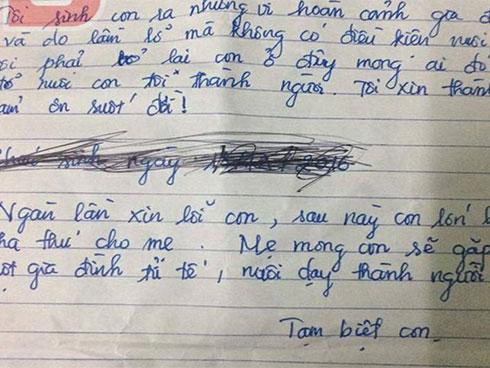 Tôi sinh con ra nhưng vì hoàn cảnh gia đ
và do lầm lỡ mà không có điều kiện nuôi
ôi phải bỏ lại con ở đây mong ai đó
tế nuôi con tôi thành người. Tôi xin thàn
ảm ơn suốt đời!
sinh ngày 2016
Ngàn lần xin lỗi con, sau này con lớn
ha thứ cho mẹ. Mẹ mong con sẽ gặp
ột gia đình tử tế, nuôi dạy thành người
Tạm biệt con.